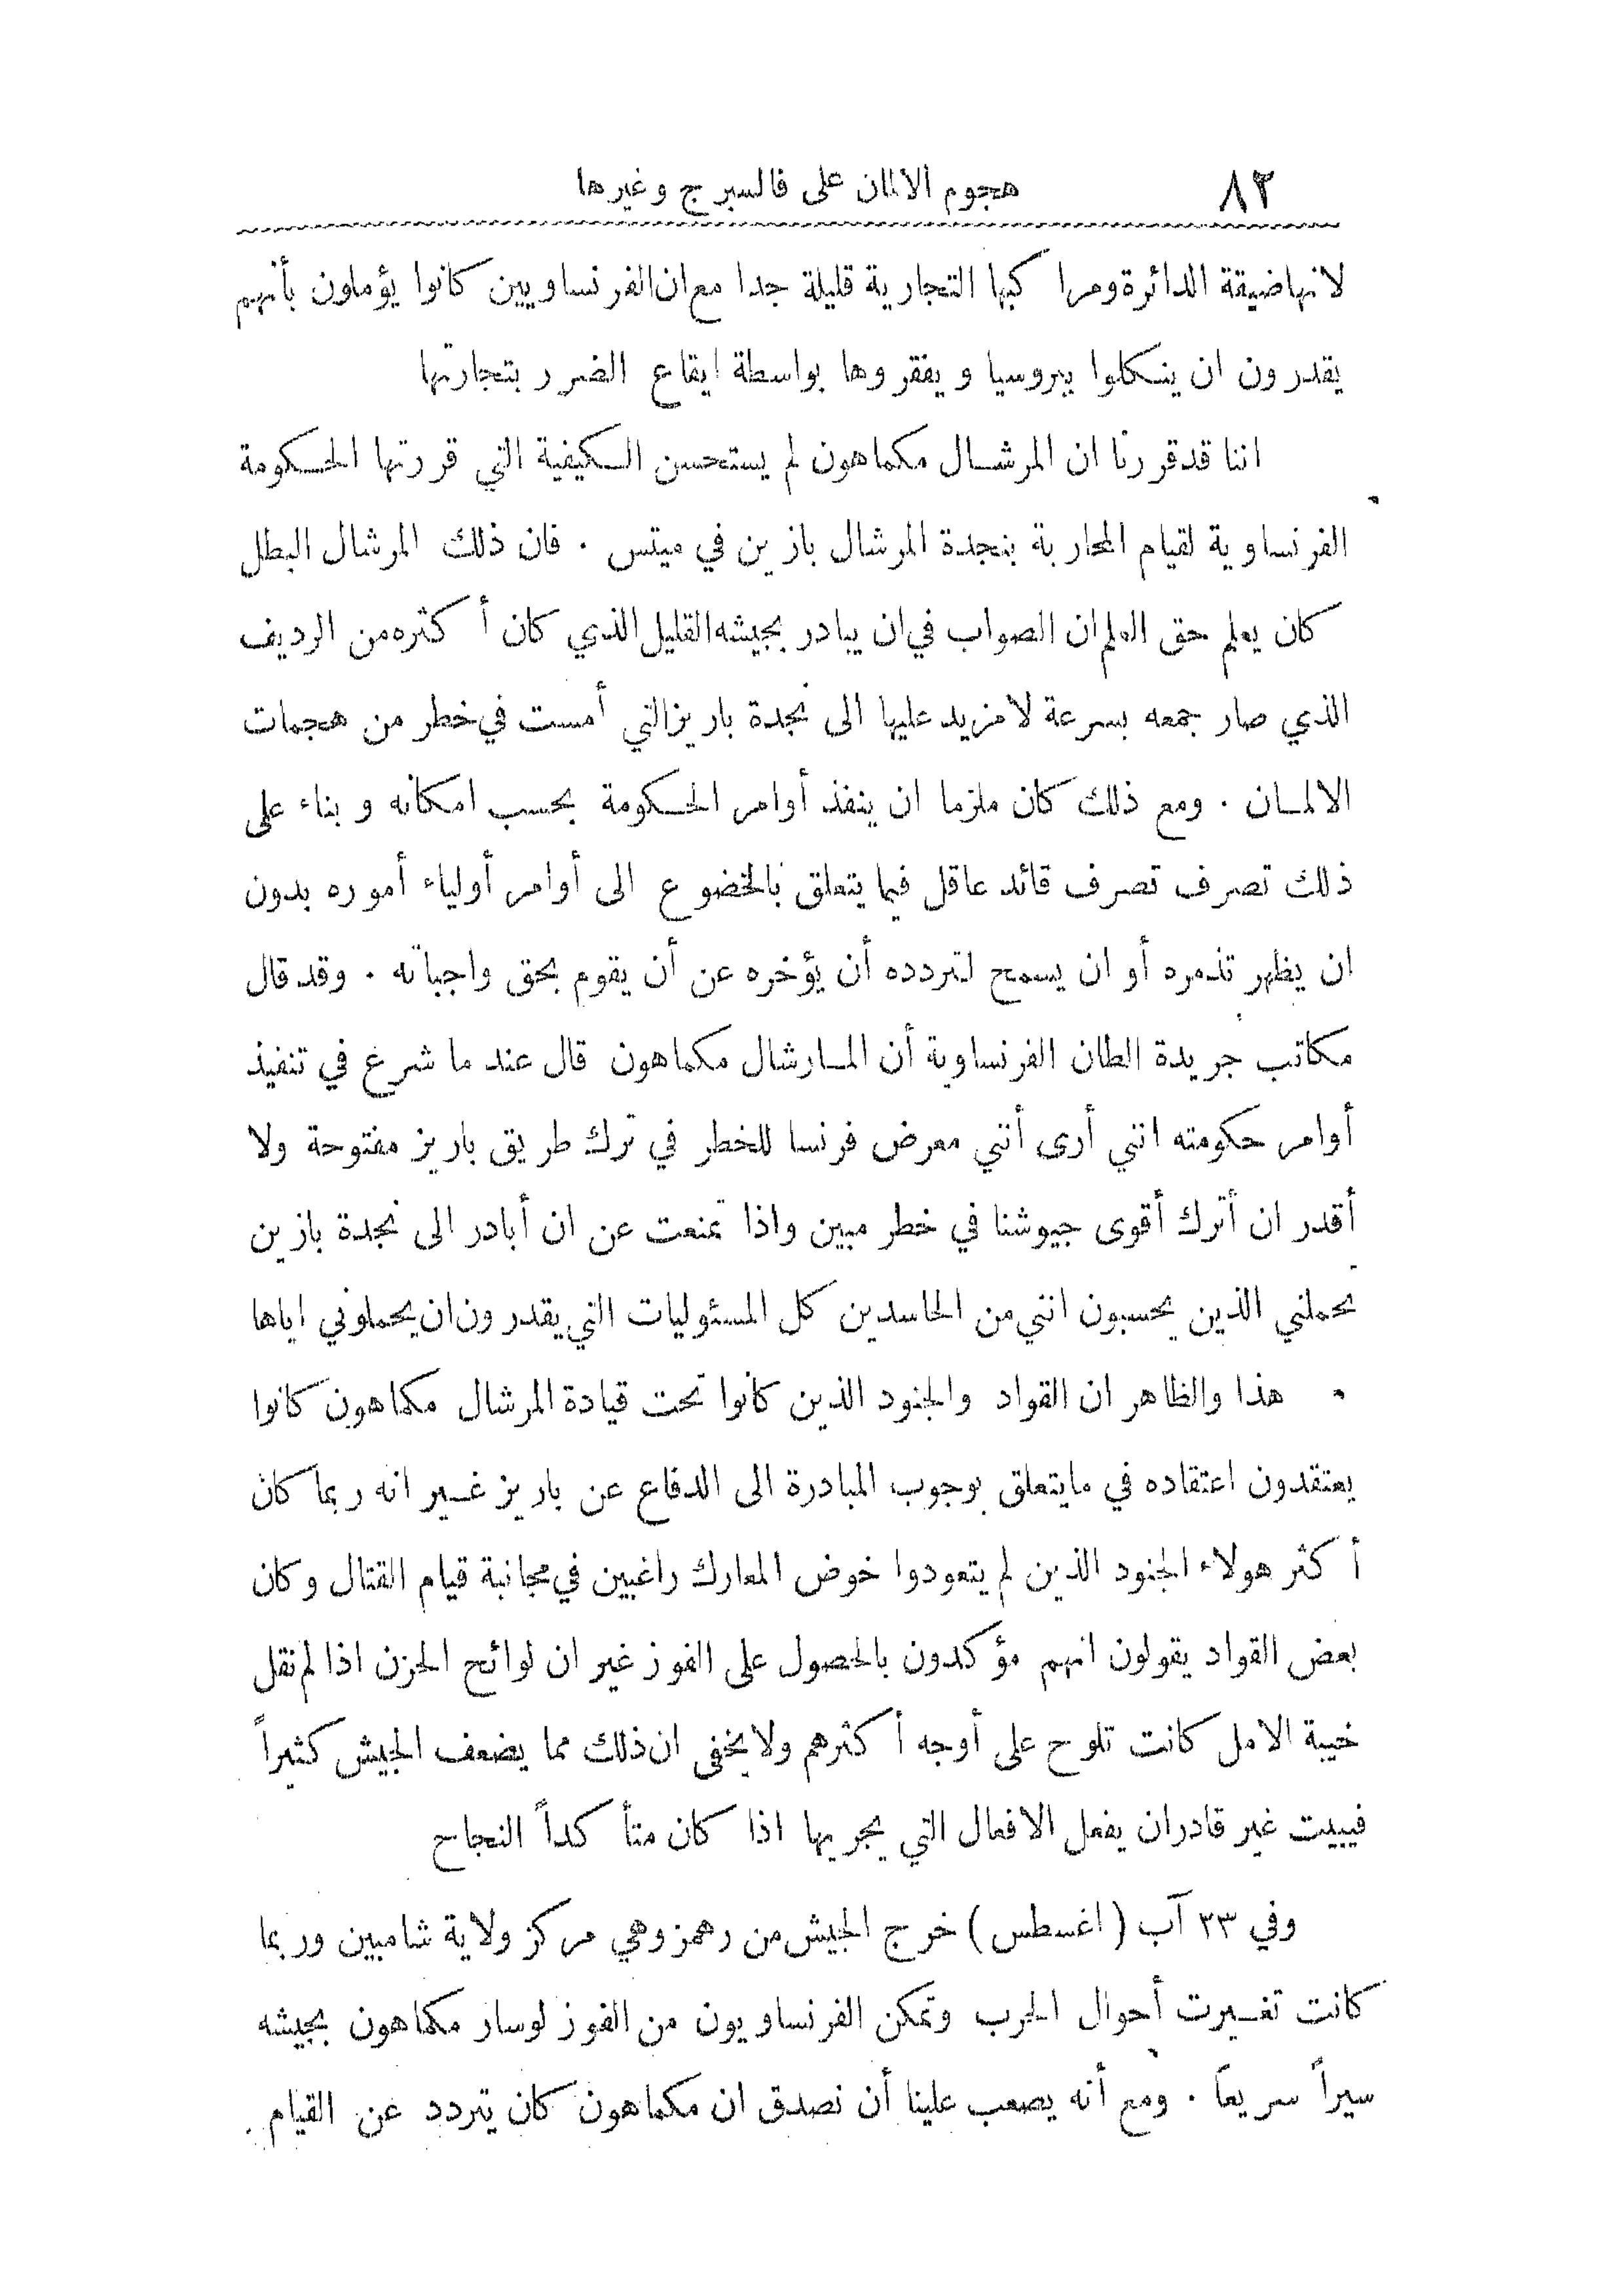 ٨٢ هجوم الالمان على فالسبرج وغيرها
لانها ضيقة الدائرة ومراكبها التجارية قليلة جدا مع ان الفرنساويين كانوا يؤملون بأنهم
يقدرون ان ينكلوا ببروسيا ويفقروها بواسطة ايقاع الضرر بتجارتها
اننا قد قررنا ان المرشال مكماهون لم يستحسن الكيفية التي قررتها الحكومة
الفرنساوية لقيام المحاربة بنجدة المرشال بازين في ميتس . فان ذلك المرشال البطل
كان يعلم حق العلم ان الصواب في ان يبادر بجيشه القليل الذي كان أكثره من الرديف
الذي صار جمعه بسرعة لا مزيد عليها الى نجدة باريز التي أمست في خطر من هجمات
الالمان . ومع ذلك كان ملزما ان ينفذ أوامر الحكومة بحسب امكانه وبناء على
ذلك تصرف تصرف قائد عاقل فيما يتعلق بالخضوع الى أوامر أولياء أموره بدون
ان يظهر تذمره أو ان يسمح لتردده أن يؤخره عن أن يقوم بحق واجباته . وقد قال
مكاتب جريدة الطان الفرنساوية أن المارشال مكماهون قال عند ما شرع في تنفيذ
أوامر حكومته انني أرى أنني معرض فرنسا للخطر في ترك طريق باريز مفتوحة ولا
أقدر ان أترك أقوى جيوشنا في خطر مبين واذا تمنعت عن ان أبادر الى نجدة بازين
يحملني الذين يحسبون انني من الحاسدين كل المسئوليات التي يقدرون ان يحملوني اياها
. هذا والظاهر ان القواد والجنود الذين كانوا تحت قيادة المرشال مكماهون كانوا
يعتقدون اعتقاده في ما يتعلق بوجوب المبادرة الى الدفاع عن باريز غير انه ربما كان
أكثر هولاء الجنود الذين لم يتعودوا خوض المعارك راغبين في مجانبة قيام القتال وكان
بعض القواد يقولون انهم مؤكدون بالحصول على الفوز غير ان لوائح الحزن اذا لم نقل
خيبة الامل كانت تلوح على أوجه أكثرهم ولا يخفى ان ذلك مما يضعف الجيش كثيراً
فيبيت غير قادر ان يفعل الافعال التي يجريها اذا كان متأكداً النجاح
وفي ٢٣ آب ( اغسطس ) خرج الجيش من رهمز وهي مركز ولاية شامبين وربما
كانت تغيرت أحوال الحرب وتمكن الفرنساويون من الفوز لو سار مكماهون بجيشه
سيراً سريعاً . ومع أنه يصعب علينا أن نصدق ان مكماهون كان يتردد عن القيام